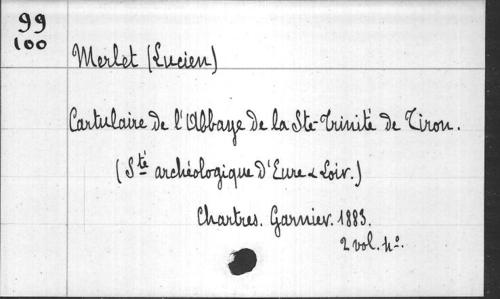 99
100
Merlet (Lucien)
Cartulaire de l'Abbaye de la Ste-Trinité de Tiron.
(Sté archéologique d'Eure & Loir.)
Chartres. Garnier. 1883.
2 vol. 4º.